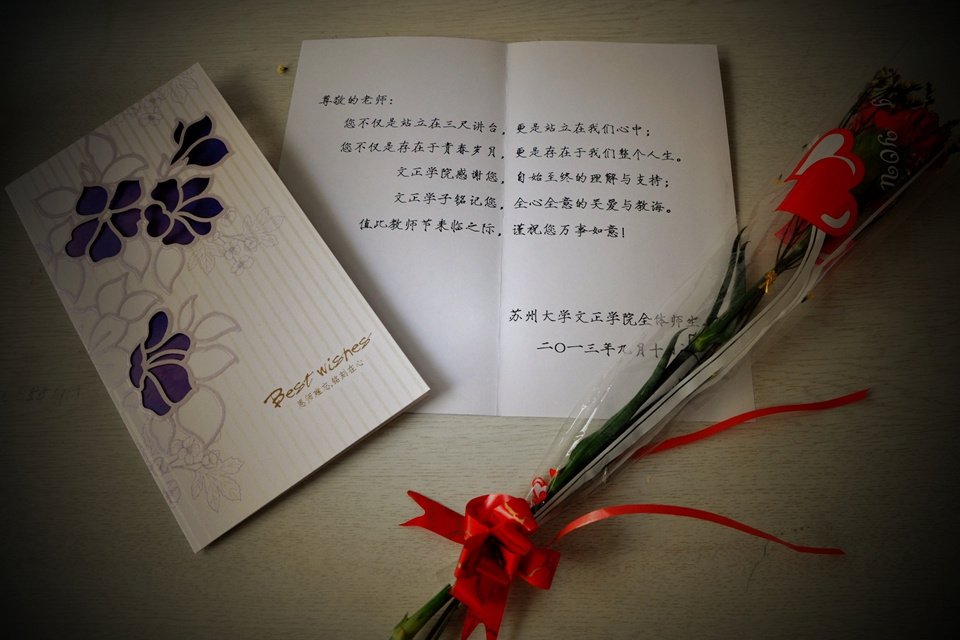 Best wishes
恩师难忘,铭刻在心
尊敬的老师：
您不仅是站立在三尺讲台，更是站立在我们心中；
您不仅是存在于青春岁月，更是存在于我们整个人生。
文正学院感谢您，自始至终的理解与支持；
文正学子铭记您，全心全意的关爱与教诲。
值此教师节来临之际，谨祝您万事如意！
苏州大学文正学院全体师生
二〇一三年九月十日